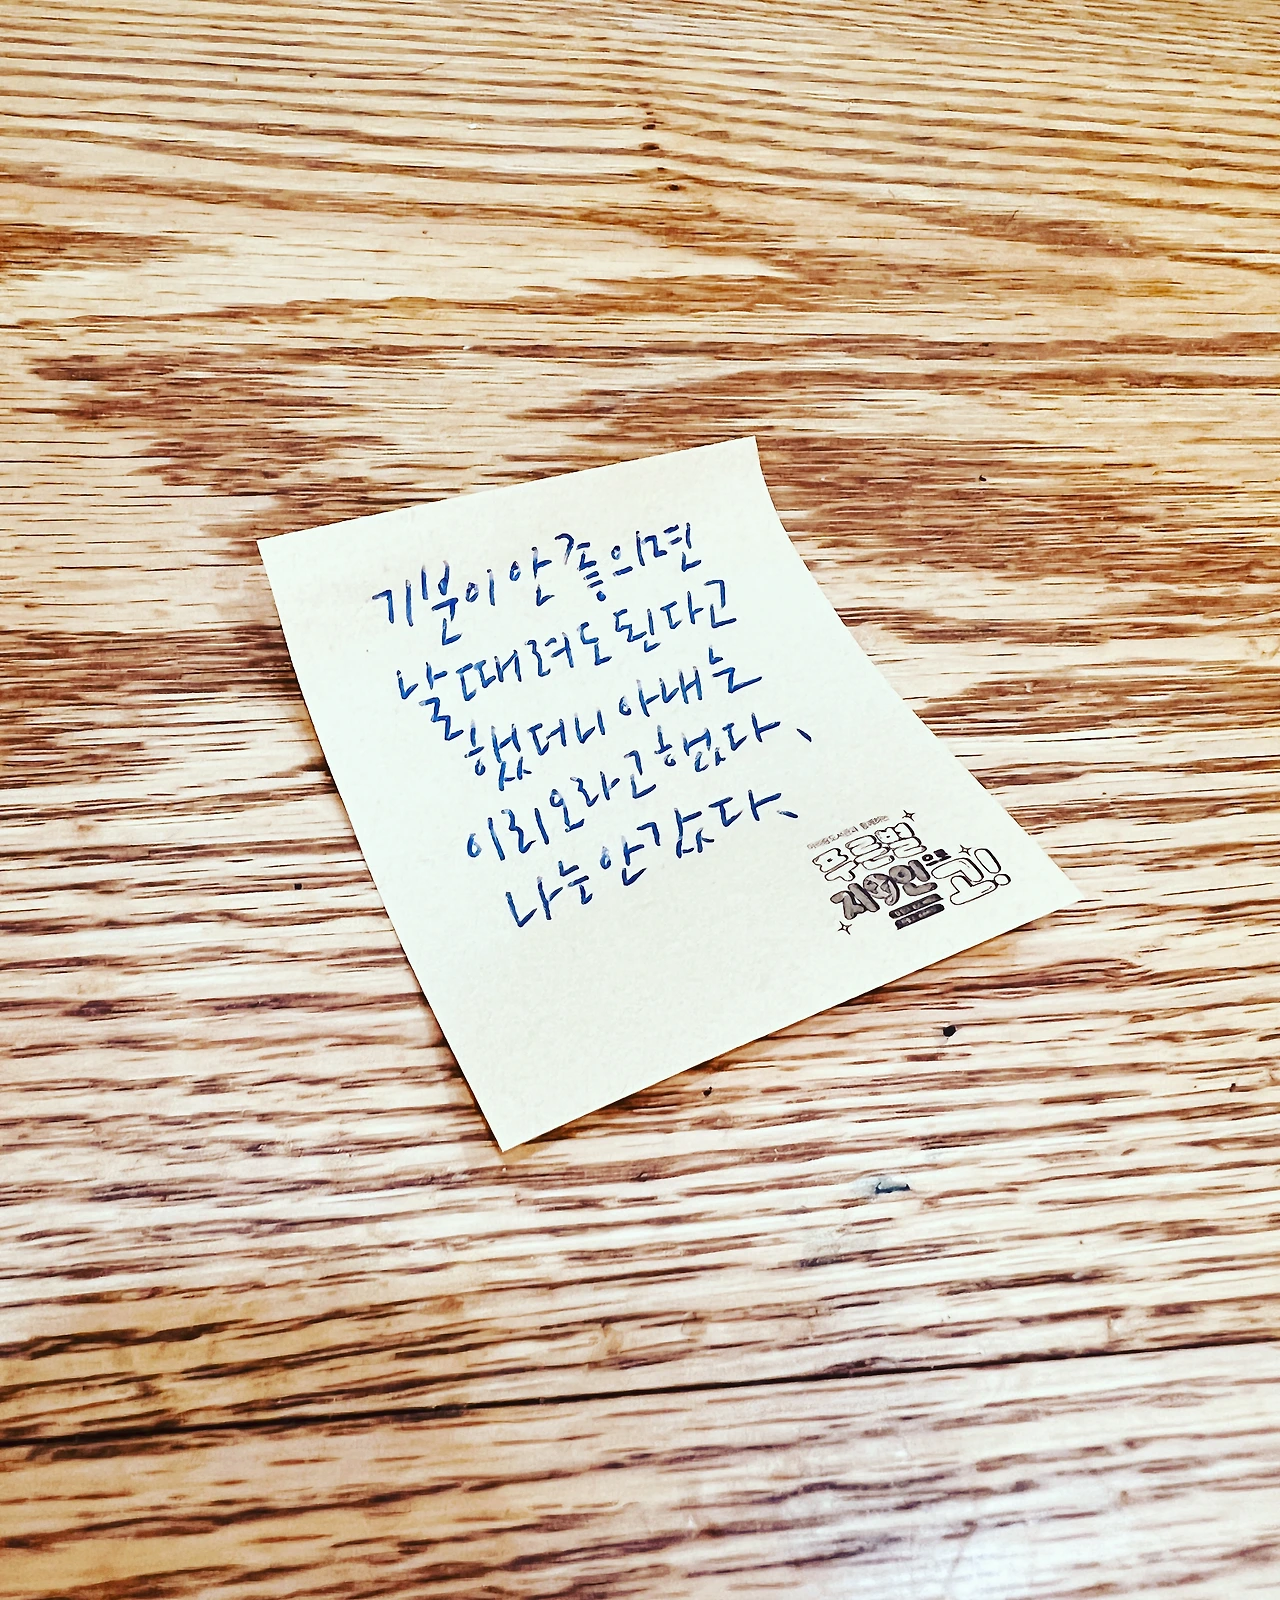 기분이 안 좋의면
날 때려도 된다고
했더니 아내는
이리오라고 했다.
나는 안 갔다.
푸른별
지 인으로
고!